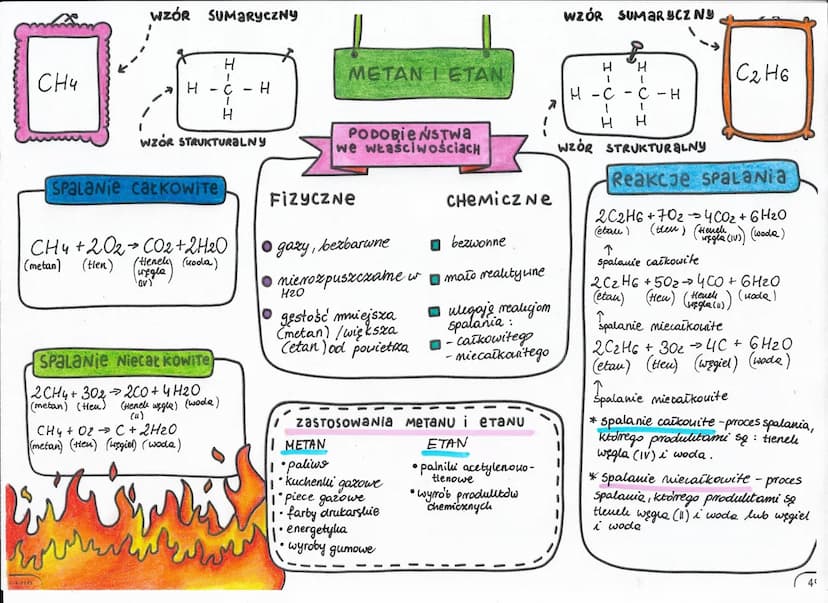 WZÓR SUMARYCZNY
CH4
H
H - C - H
H
WZÓR STRUKTURALNY
METAN I ETAN
WZÓR SUMARYCZNY
C2H6
H H
H - C - C - H
H H
WZÓR STRUKTURALNY
SPALANIE CAŁKOWITE
CH4 + 2O2 → CO2 + 2H2O
(metan) (tlen) (tlenek (woda)
węgla
(IV)
SPALANIE NIECAŁKOWITE
2CH4 + 3O2 → 2CO + 4H2O
(metan) (tlen) (tlenek węgla) (woda)
(II)
CH4 + O2 → C + 2H2O
(metan) (tlen) (węgiel) (woda)
PODOBIEŃSTWA
WE WŁAŚCIWOŚCIACH
FIZYCZNE
gazy, bezbarwne
nierozpuszczalne w
H2O
gęstość mniejsza
(metan) / większa
(etan) od powietrza
CHEMICZNE
bezwonne
mało reaktywne
ulegają reakcjom
spalania:
- całkowitego
- niecałkowitego
ZASTOSOWANIA METANU I ETANU
METAN
• paliwo
• kuchenki gazowe
• piece gazowe
• farby drukarskie
• energetyka
• wyroby gumowe
ETAN
• palniki acetylenowo-
tlenowe
• wyrób produktów
chemicznych
REAKCJE SPALANIA
2C2H6 + 7O2 → 4CO2 + 6H2O
(etan) (tlen) (tlenek (woda)
węgla (IV))
↑
spalanie całkowite
2C2H6 + 5O2 → 4CO + 6H2O
(etan) (tlen) (tlenek (woda)
węgla (II))
↑
spalanie niecałkowite
2C2H6 + 3O2 → 4C + 6H2O
(etan) (tlen) (węgiel) (woda)
↑
spalanie niecałkowite
* spalanie całkowite - proces spalania,
którego produktami są : tlenek
węgla (IV) i woda.
* spalanie niecałkowite - proces
spalania, którego produktami są
tlenek węgla (II) i woda lub węgiel
i woda